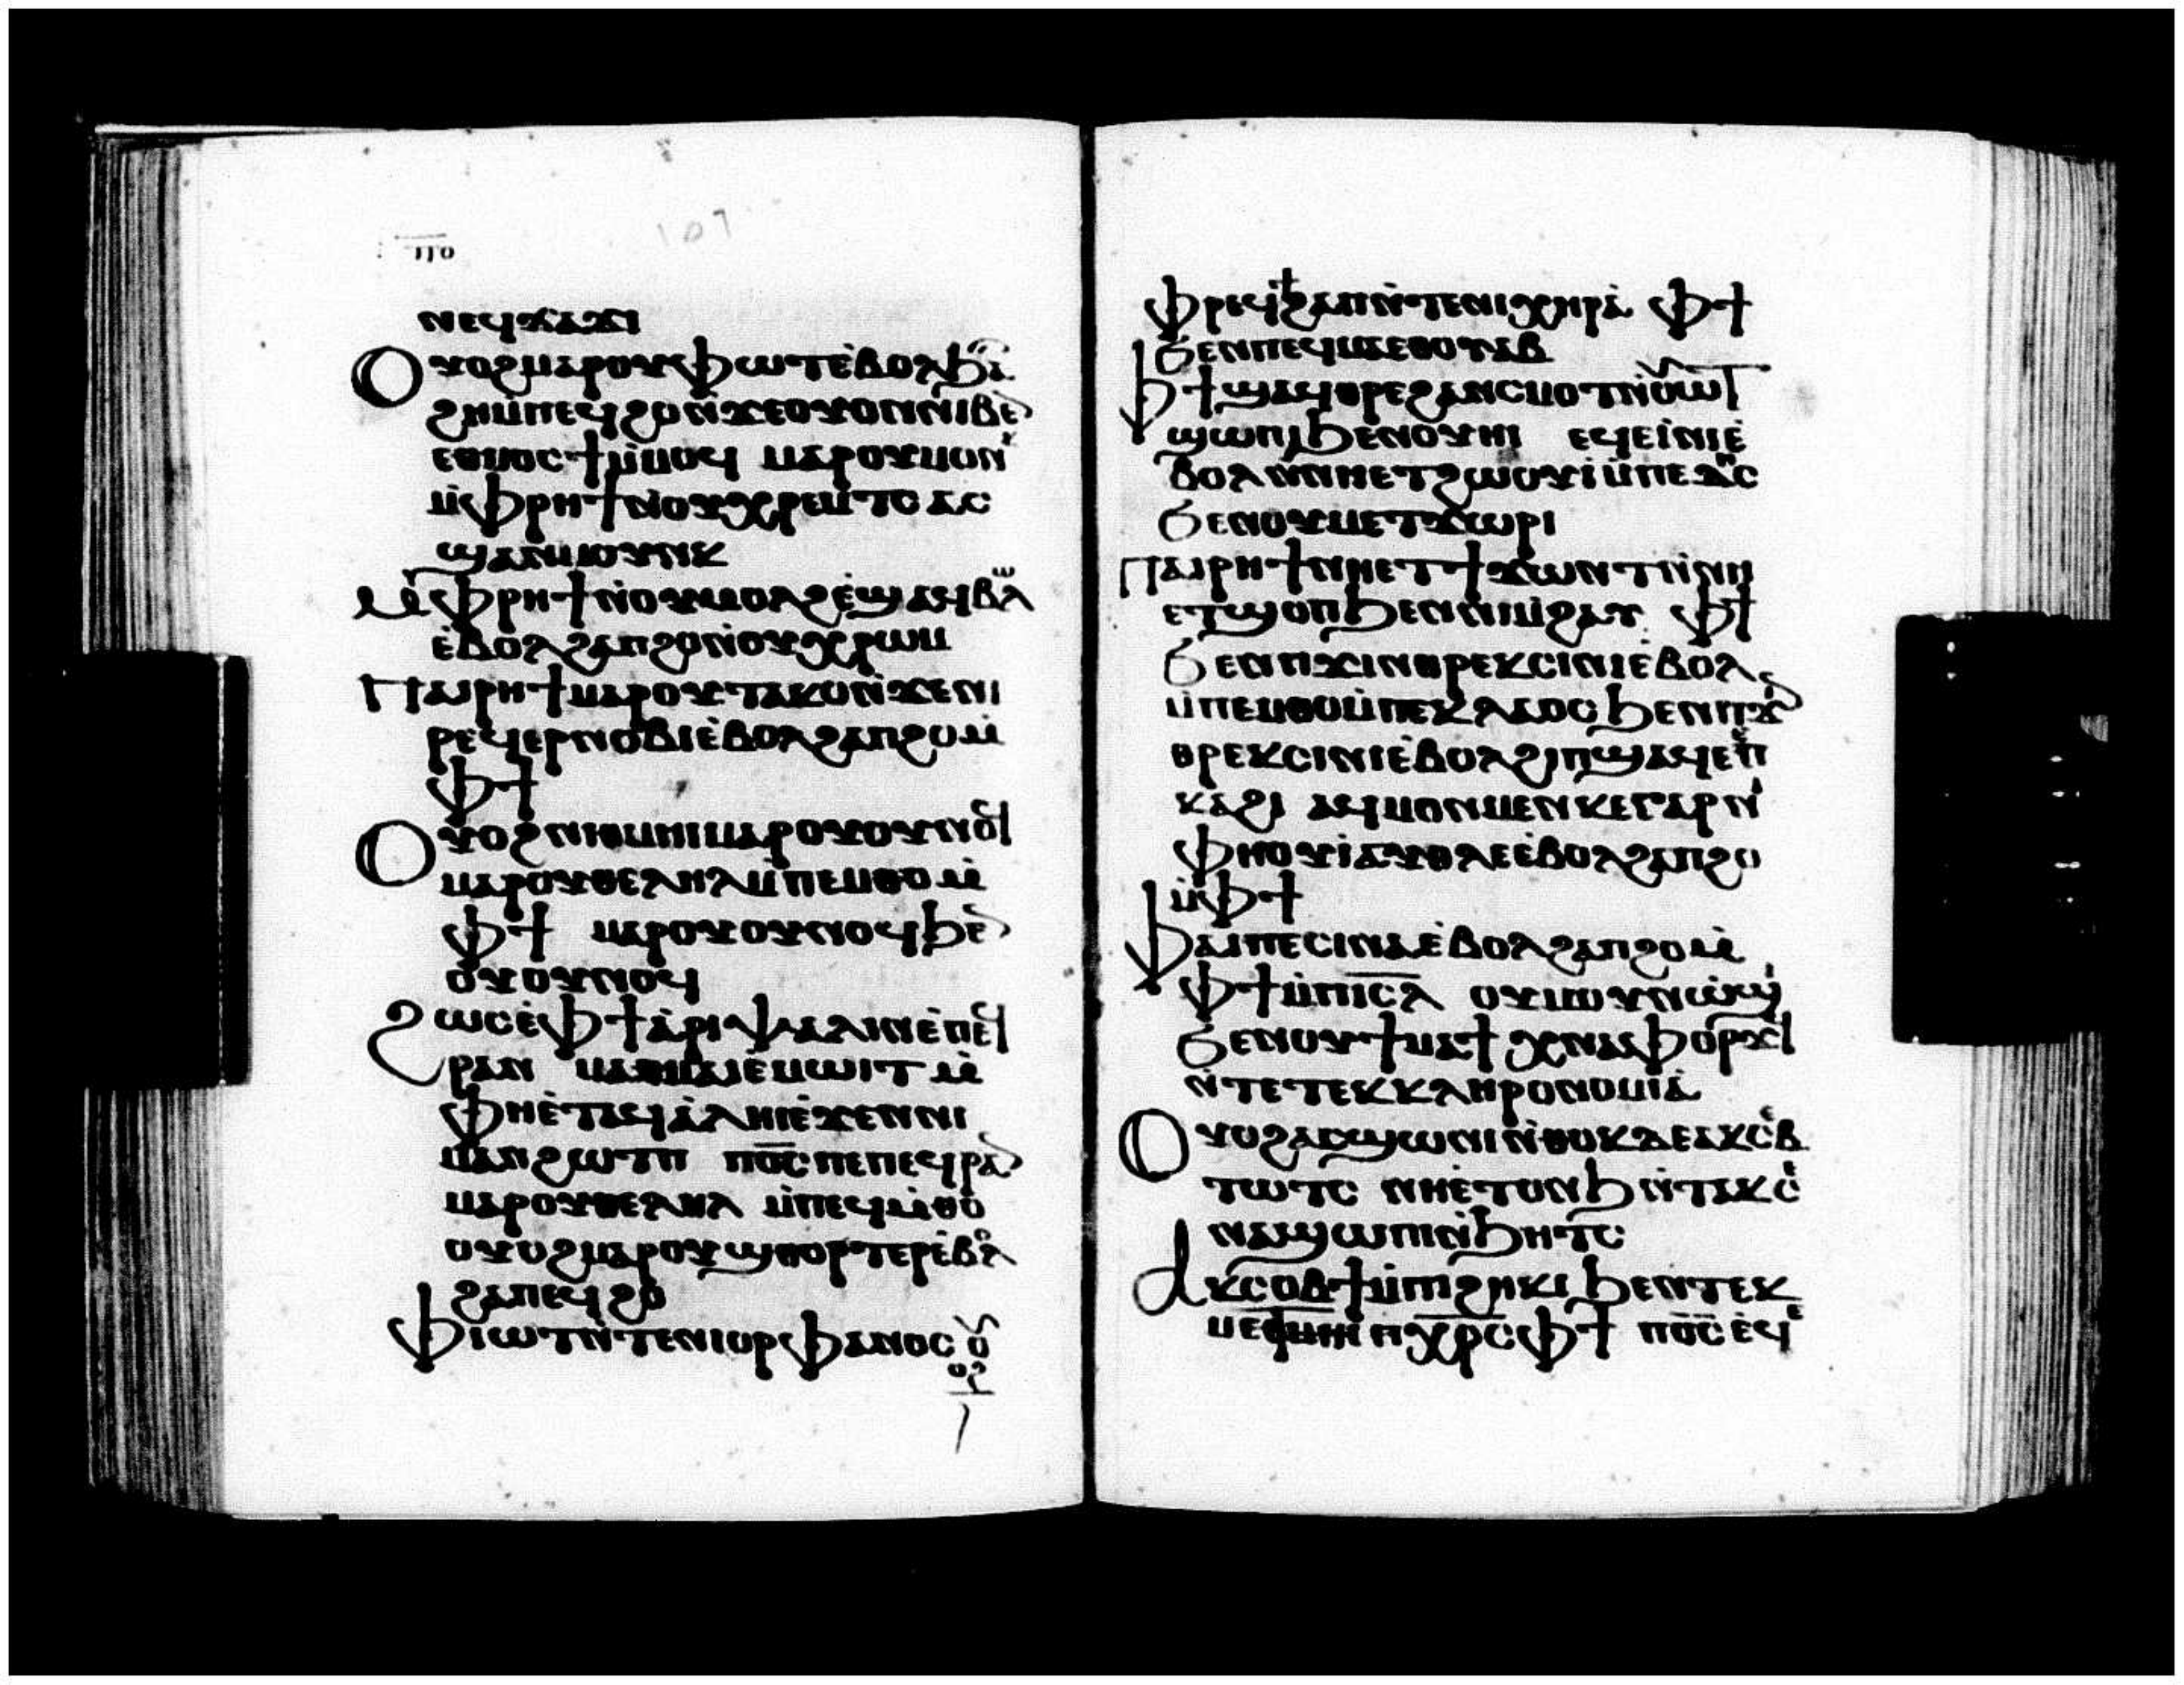 ⲡⲑ
107
ⲛⲉϥϫⲁϫⲓ
Ⲟⲩⲟϩⲙⲁⲣⲟⲩⲫⲱⲧⲉ̀ⲃⲟⲗϧⲁ
ϩⲏⲙ̀ⲡⲉϥϩⲟⲛ̀ϫⲉⲟⲩⲟⲛⲛⲓⲃⲉ
ⲉⲑⲙⲟⲥϯⲙ̀ⲙⲟϥ ⲙⲁⲣⲟⲩⲙⲟⲛ
ⲙ̀ⲫⲣⲏϯⲛ̀ⲟⲩⲭⲣⲉⲙⲧⲥ ⲁⲥ
ϣⲁⲛⲙⲟⲩⲛⲕ
Ⲙ̀ⲫⲣⲏϯⲛ̀ⲟⲩⲙⲟⲗϩⲉ̀ϣⲁϥⲃⲱⲗ
ⲉ̀ⲃⲟⲗϩⲁⲡϩⲟⲛ̀ⲟⲩⲭⲣⲱⲙ
Ⲡⲁⲓⲣⲏϯⲙⲁⲣⲟⲩⲧⲁⲕⲟⲛ̀ϫⲉⲛⲓ
ⲣⲉϥⲉⲣⲛⲟⲃⲓⲉ̀ⲃⲟⲗϩⲁⲡϩⲟⲙ̀
ⲫϯ
Ⲟⲩⲟϩⲛⲓⲑⲙⲏⲓⲙⲁⲣⲟⲩⲟⲩⲛⲟϥ
ⲙⲁⲣⲟⲩⲑⲉⲗⲏⲗⲙ̀ⲡⲉⲙⲑⲟⲙ̀
ⲫϯ ⲙⲁⲣⲟⲩⲟⲩⲛⲟϥϧⲉ
ⲟⲩⲟⲩⲛⲟϥ
Ϩⲱⲥⲉ̀ⲫϯⲁ̀ⲣⲓⲯⲁⲗⲓⲛⲉ̀ⲡⲉϥ
ⲣⲁⲛ ⲙⲁⲙⲁⲓⲉⲙⲱⲓⲧⲙ̀
ⲫⲏⲉ̀ⲧⲁϥⲁ̀ⲗⲏⲓⲉ̀ϫⲉⲛⲛⲓ
ⲙⲁⲛϩⲱⲧⲡ ⲡⲟ̅ⲥ̅ⲡⲉⲡⲉϥⲣⲁ
ⲙⲁⲣⲟⲩⲑⲉⲗⲏⲗ ⲙ̀ⲡⲉϥⲙ̀ⲑⲟ
ⲟⲩⲟϩⲙⲁⲣⲟⲩϣⲑⲟⲣⲧⲉⲣⲉ̀ⲃⲟⲗ
ϩⲁⲡⲉϥϩⲟ
Ⲫⲓⲱⲧⲛ̀ⲧⲉⲛⲓⲟⲣⲫⲁⲛⲟⲥ ⲟⲩ
ⲟϩ
ⲫⲣⲉϥϯϩⲁⲡⲛ̀ⲧⲉⲛⲓⲭⲏⲣⲁ ⲫϯ
ϧⲉⲛⲡⲉϥⲙⲁⲉⲑⲟⲩⲁⲃ
Ⲫϯϣⲁϥⲑⲣⲉϩⲁⲛⲥⲙⲟⲧⲛ̀ⲟⲩⲱⲧ
ϣⲱⲡⲓϧⲉⲛⲟⲩⲏⲓ ⲉϥⲉⲓ̀ⲛⲓⲉ̀
ⲃⲟⲗⲛ̀ⲛⲏⲉⲧϩⲱⲟⲩⲓ̀ⲙ̀ⲡⲉⲇⲏⲥ
ϧⲉⲛⲟⲩⲙⲉⲧϫⲱⲣⲓ
Ⲡⲁⲓⲣⲏϯⲛⲏⲉⲧϯϫⲱⲛⲧⲛ̀ⲛⲏ
ⲉⲧϣⲟⲡϧⲉⲛⲛⲓⲙ̀ϩⲁⲩ ⲫϯ
ϧⲉⲛⲡϫⲓⲛⲑⲣⲉⲕⲥⲓⲛⲓⲉ̀ⲃⲟⲗ
ⲙ̀ⲡⲉⲙⲑⲟⲙ̀ⲡⲉⲕⲗⲁⲟⲥ ϧⲉⲛⲡϫ
ⲑⲣⲉⲕⲥⲓⲛⲓⲉ̀ⲃⲟⲗϩⲓⲡϣⲁϥⲉⲡ
ⲕⲁϩⲓ ⲁϥⲙⲟⲛⲙⲉⲛⲕⲉⲅⲁⲣⲛ
ⲫⲏⲟⲩⲓ̀ⲁⲩⲑⲗⲉⲉ̀ⲃⲟⲗϩⲁⲡϩⲟ
ⲙ̀ⲫϯ
Ⲫⲁⲓⲡⲉⲥⲓⲛⲁⲉ̀ⲃⲟⲗϩⲁⲡϩⲟⲙ̀
ⲫϯⲙ̀ⲡⲓ̅ⲥ̅ⲗ ⲟⲩⲙⲟⲩⲛϩⲱⲟⲩ
ϧⲉⲛⲟⲩϯⲙⲁϯ ⲭⲛⲁⲫⲟⲣϫϥ
ⲛ̀ⲧⲉⲧⲉⲕⲕⲗⲏⲣⲟⲛⲟⲙⲓⲁ
Ⲟⲩⲟϩⲁⲥϣⲱⲛⲓⲛ̀ⲑⲟⲕⲇⲉⲁⲕⲥⲉⲃ
ⲧⲱⲧⲥ ⲛⲏⲉ̀ⲧⲟⲛϧⲛ̀ⲧⲁⲕⲥⲉ
ⲛⲁϣⲱⲡⲓⲛ̀ϧⲏⲧⲥ
Ⲁⲕⲥⲟⲃϯⲙ̀ⲡⲓϩⲏⲕⲓ ϧⲉⲛⲧⲉⲕ
ⲡⲭⲣⲥ ⲫϯ ⲡⲟ̅ⲥ̅ ⲉϥⲉ